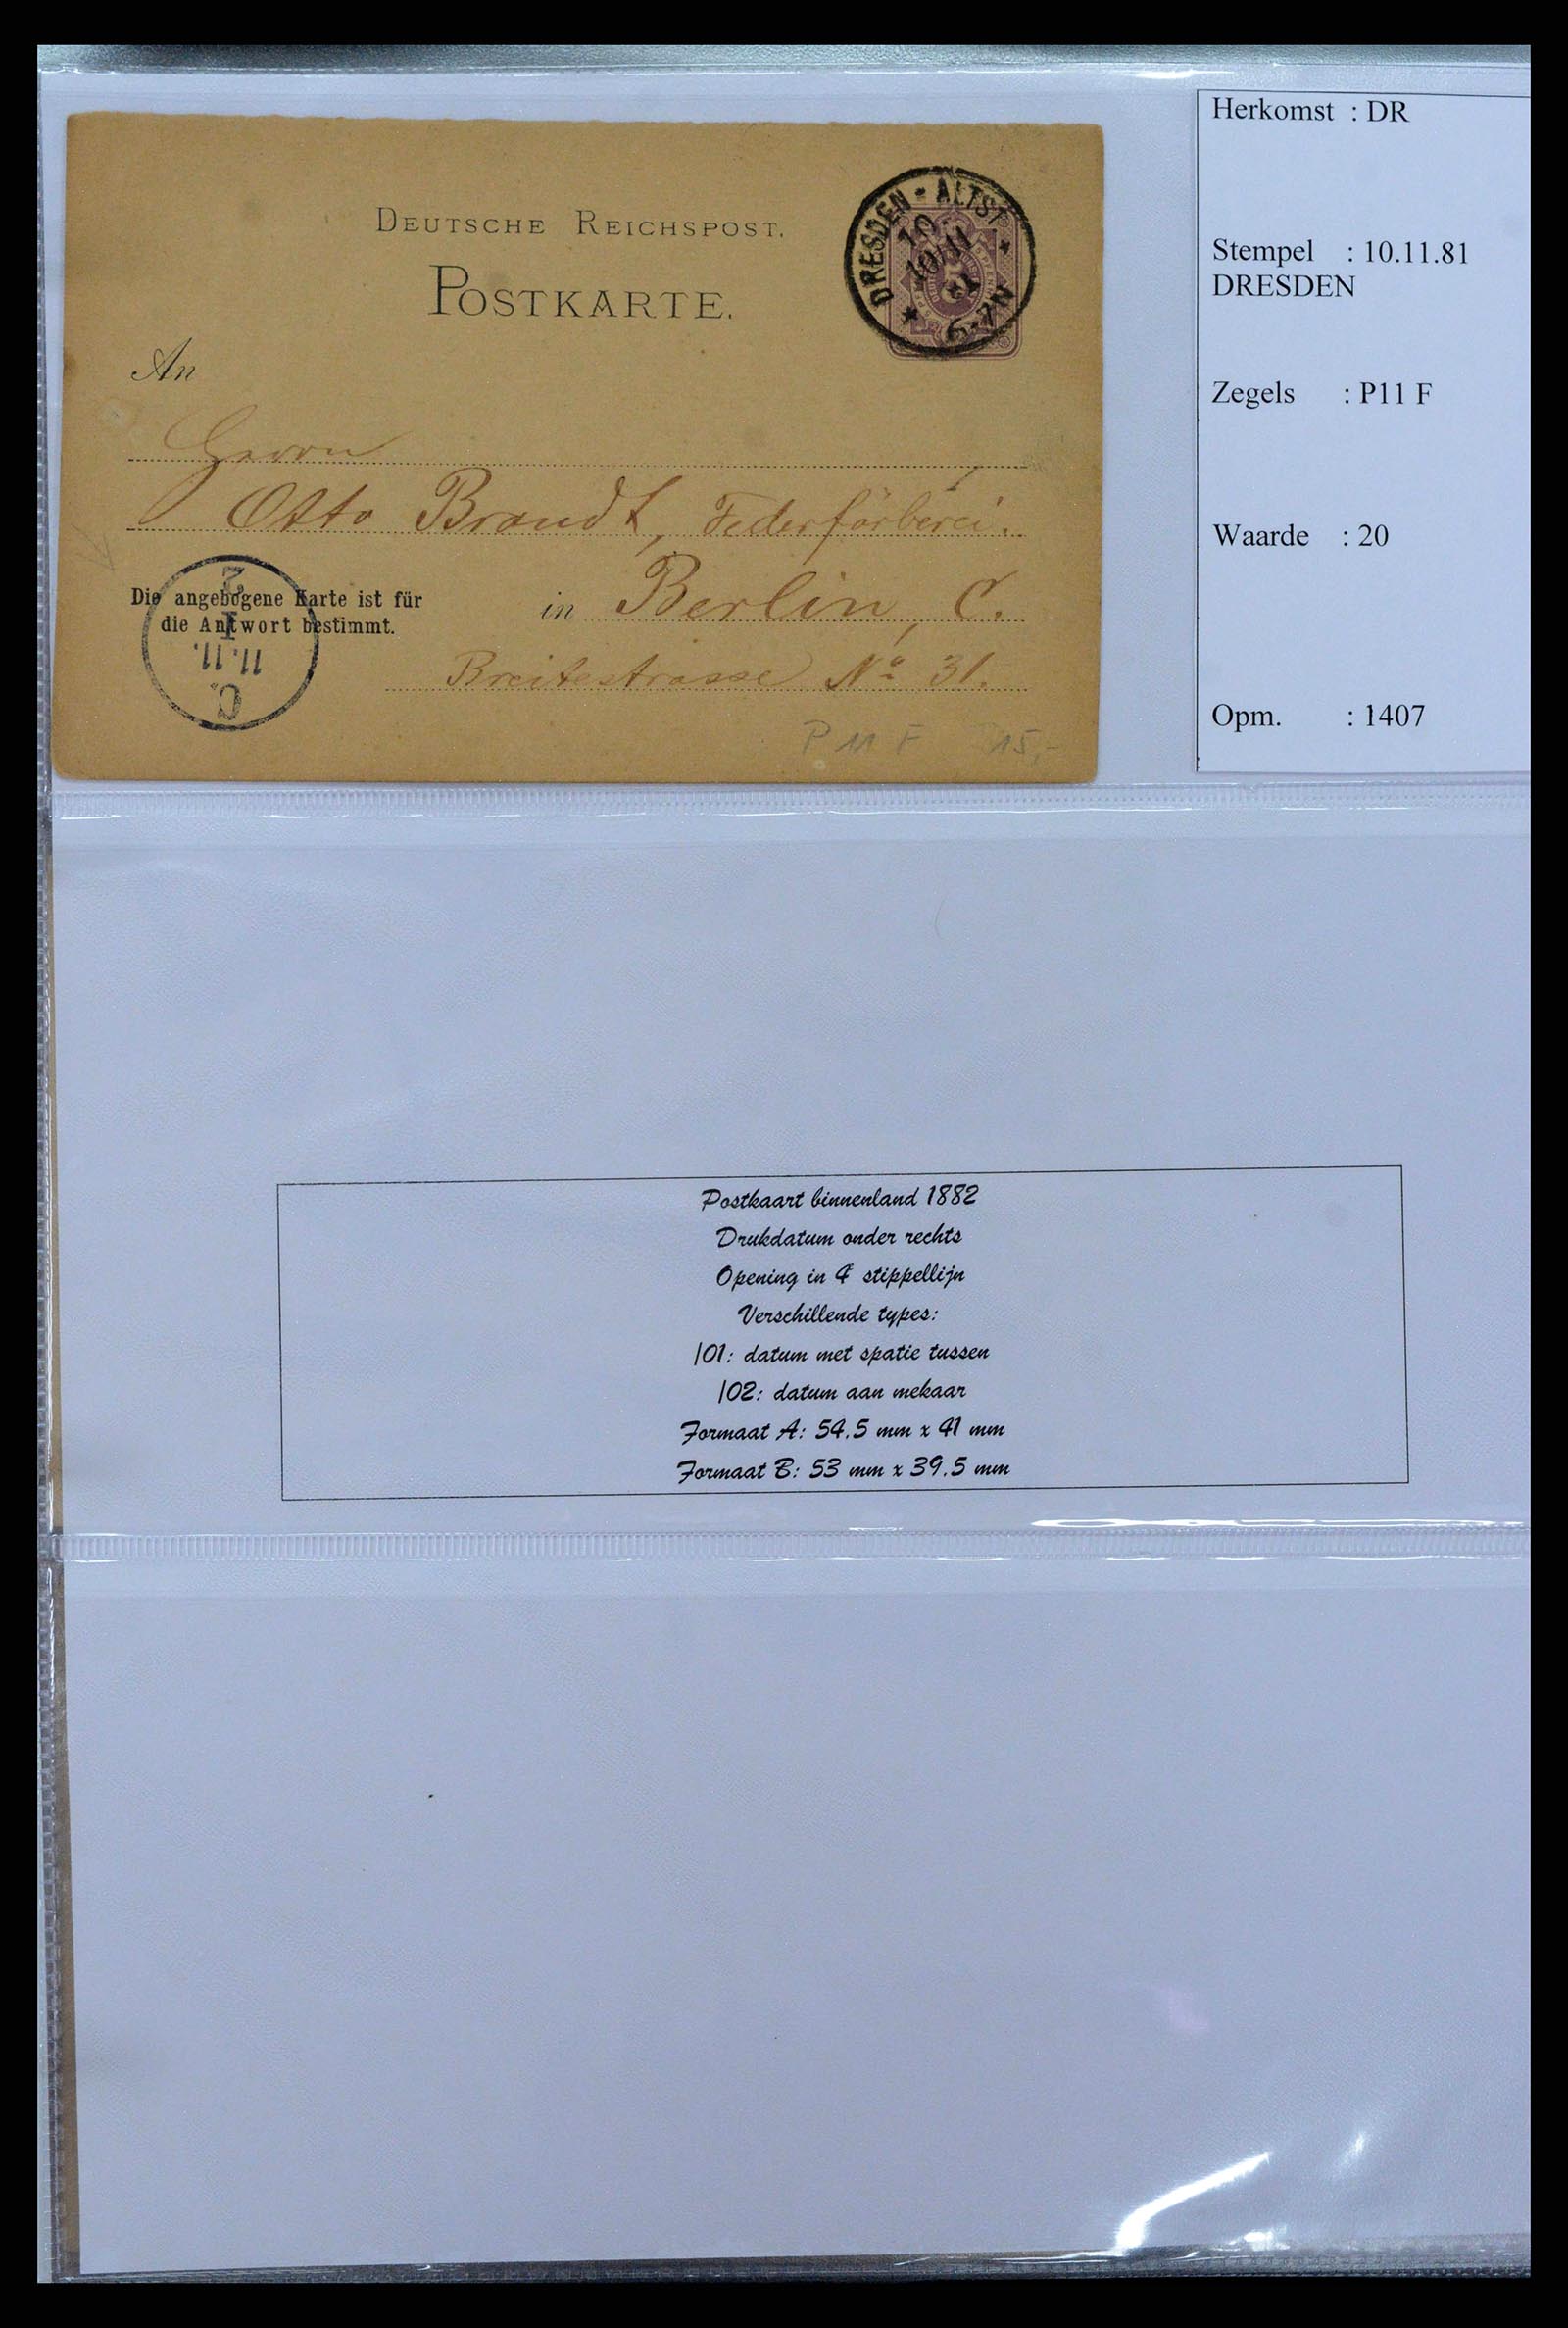 DEUTSCHE REICHSPOST.
POSTKARTE.
DRESDEN - ALTST
10
10/11
81
6-7N
An
Herrn
Otto Brandt, Federfärberei.
Die angebogene Karte ist für
die Antwort bestimmt.
in Berlin, C.
Breitestrasse No 31.
C.
11.11.
I
2
P 11 F 15,-
Herkomst : DR
Stempel : 10.11.81
DRESDEN
Zegels : P11 F
Waarde : 20
Opm. : 1407
Postkaart binnenland 1882
Drukdatum onder rechts
Opening in 4e stippellijn
Verschillende types:
/01: datum met spatie tussen
/02: datum aan mekaar
Formaat A: 54.5 mm x 41 mm
Formaat B: 53 mm x 39.5 mm